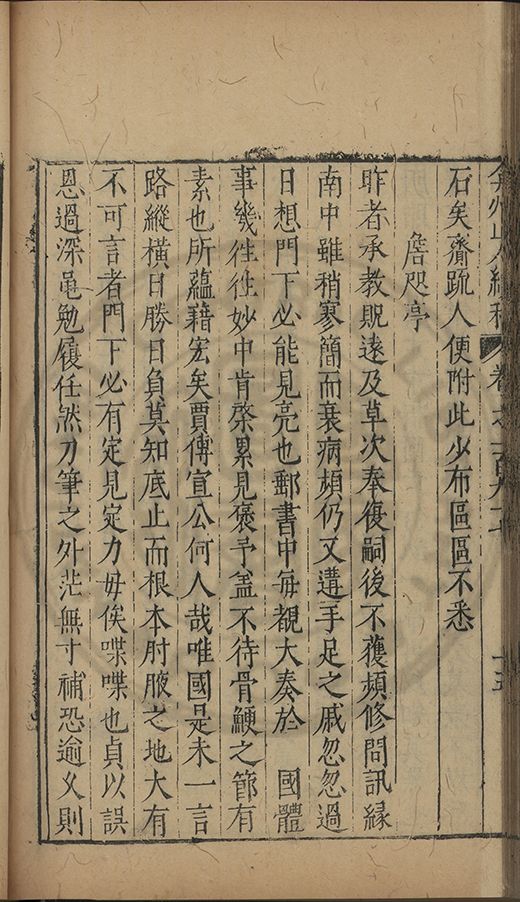 弇州山人續稿 卷之一百九十 十五
石矣齎䟽人便附此少布區區不悉
詹咫亭
昨者承教貺遠及草次奉復嗣後不獲頻修問訊緣
南中雖稍寥簡而衰病頻仍又遘手足之戚忽忽過
日想門下必能見亮也郵書中每覩大奏於 國體
事幾徃徃妙中肯綮累見褒予盖不待骨鯁之節有
素也所蘊藉宏矣賈傅宣公何人哉唯國是未一言
路縱橫日勝日負莫知底止而根本肘腋之地大有
不可言者門下必有定見定力毋俟喋喋也貞以誤
恩過深黽勉履任然刀筆之外茫無寸補恐逾乂則